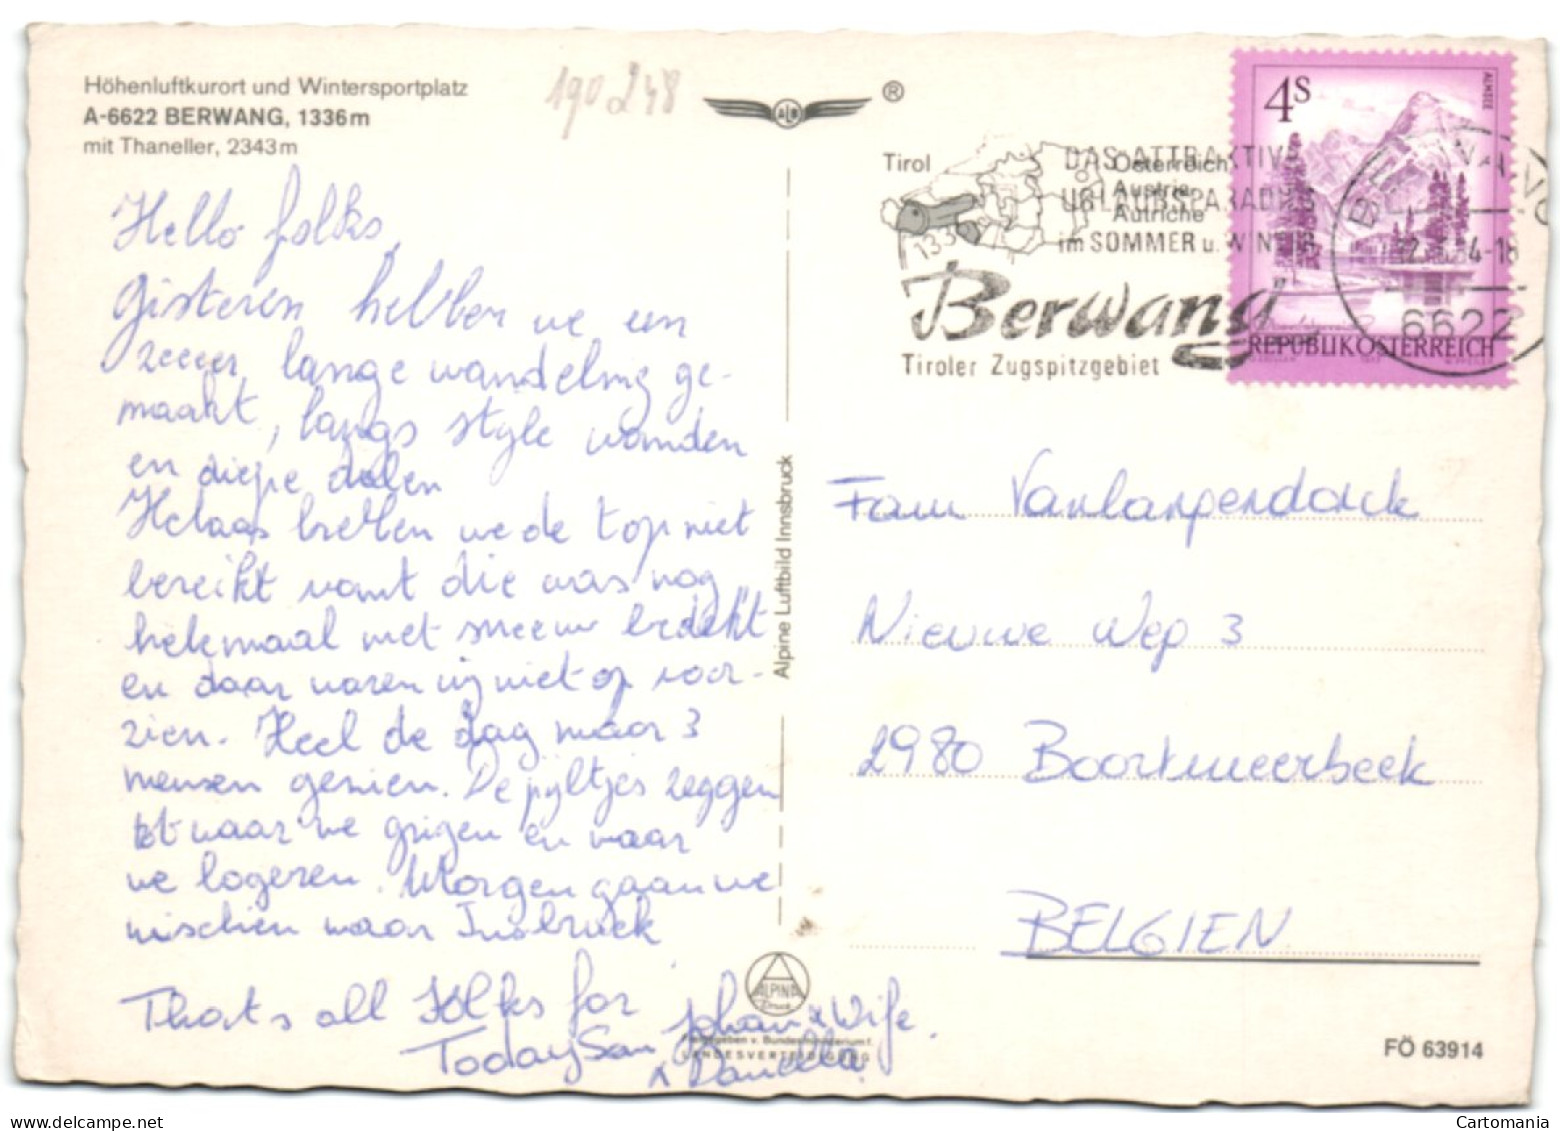 Höhenluftkurort und Wintersportplatz
A-6622 BERWANG, 1336m
mit Thaneller, 2343m
190 248
ALM
®
Tirol
Österreich
Austria
Autriche
DAS ATTRAKTIVE
URLAUBSPARADIES
im SOMMER u. WINTER
Berwang
Tiroler Zugspitzgebiet
4S
ALMSEE
REPUBLIK ÖSTERREICH
BERWANG
6622
Hello folks,
Gisteren hebben we een
zeeer lange wandeling ge-
maakt, langs style wanden
en diepe dalen
Helaas hebben we de top niet
bereikt want die was nog
helemaal met sneeuw bedekt
en daar waren wij niet op voor-
zien. Heel de dag maar 3
mensen gezien. De pijltjes zeggen
tot waar we grizen en waar
we logeren. Morgen gaan we
mischien naar Insbruck
That's all Folks for
Today San Johan & Wife.
x Daniella
Alpine Luftbild Innsbruck
ALPINA
Druck
Freigegeben v. Bundesministerium f.
LANDESVERTEIDIGUNG
Fam Vanlangendonck
Nieuwe Weg 3
2980 Boortmeerbeek
BELGIEN
FÖ 63914
Cartomania